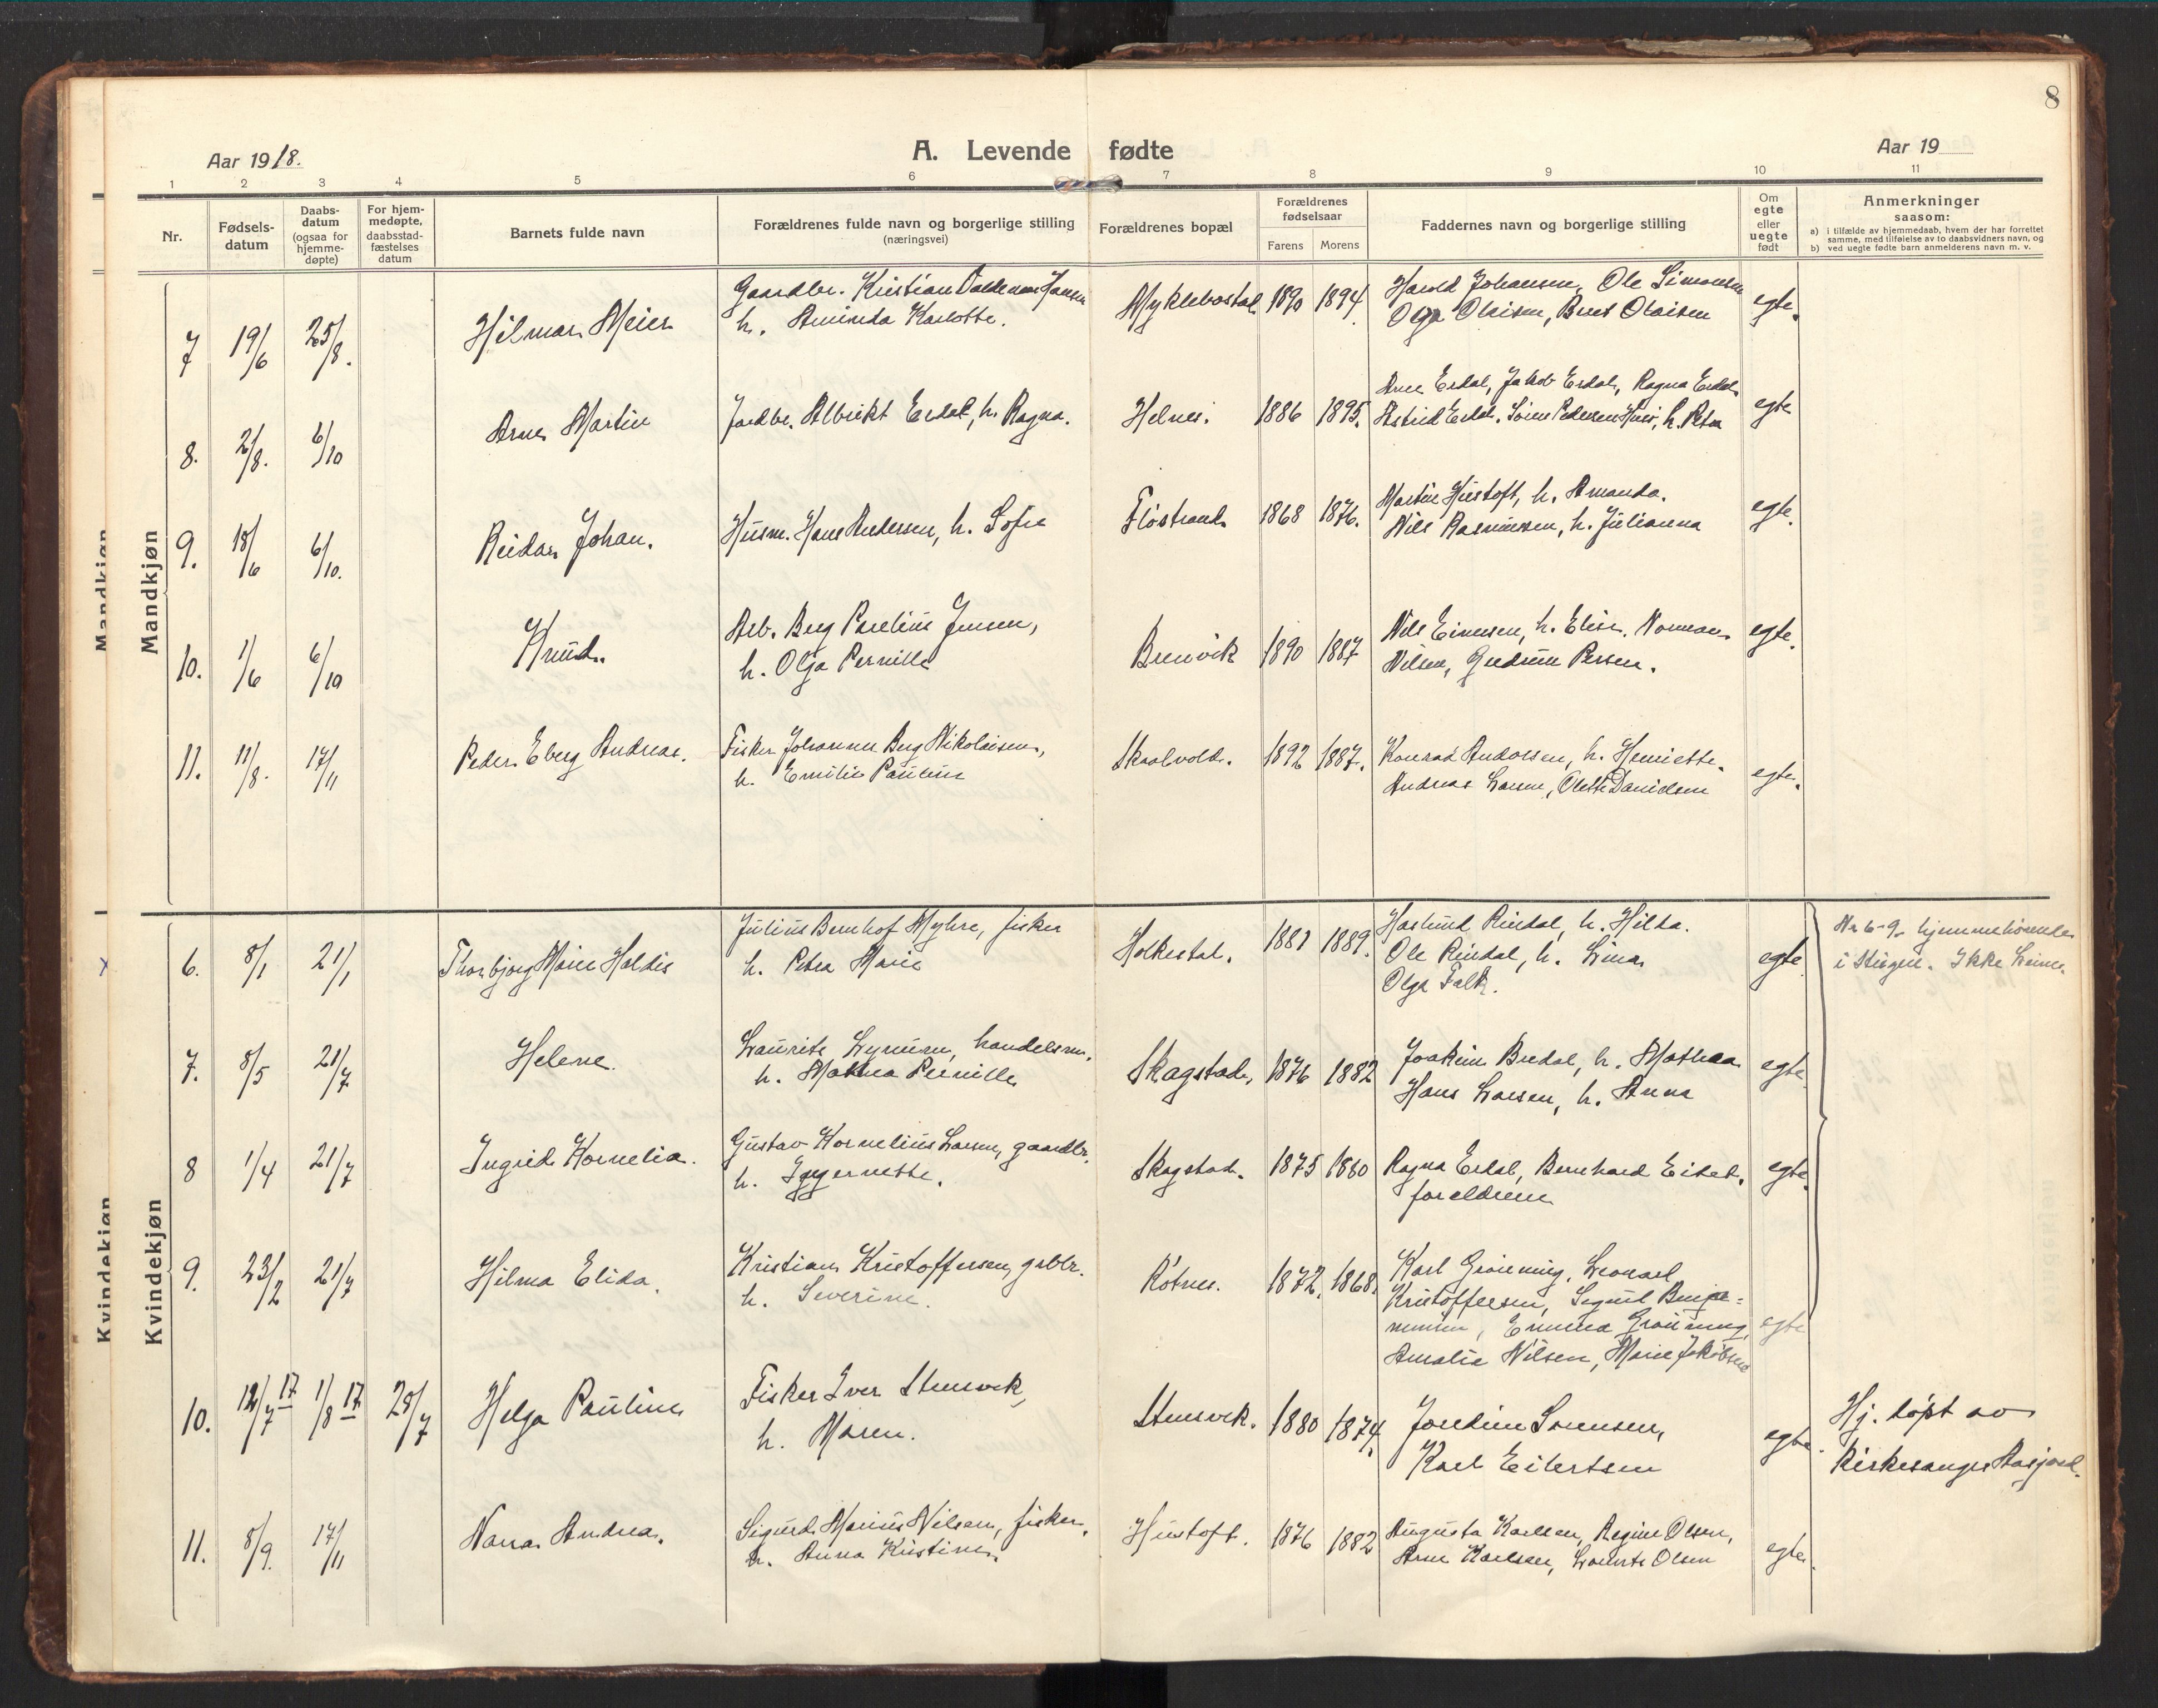 8
Aar 1918.
A. Levende fødte
Aar 19
1 2 3 4 5 6 7 8 9 10 11
Nr.
Fødsels-
datum
Daabs-
datum
(ogsaa for
hjemme-
døpte)
For hjem-
medøpte,
daabsstad-
fæstelses
datum
Barnets fulde navn
Forældrenes fulde navn og borgerlige stilling
(næringsvei)
Forældrenes bopæl
Forældrenes
fødselsaar
Farens Morens
Faddernes navn og borgerlige stilling
Om
egte
eller
uegte
født
Anmerkninger
saasom:
a) i tilfælde av hjemmedaab, hvem der har forrettet
samme, med tilføielse av to daabsvidners navn, og
b) ved uegte fødte barn anmelderens navn m. v.
Mandkjøn
Mandkjøn
7 19/6 25/8. Hilmar Meier
Gaardbr. Kristian Valdemar Jansen
h. Aminda Karlotte.
Myklebostad 1890 1894.
Harold Johansen, Ole Simonsen
Olga Olaisen, Olaisen
egte.
8. 21/8. 6/10 Arne Martin
Jordbr. Albrikt Erdal, h. Ragna.
Helnes. 1886 1895.
Arne Erdal, Jakob Erdal, Ragna Erdal
Astrid Erdal. Søren Pedersen, h. Petra
egte
9. 18/6 6/10. Reidar Johan.
Husm. Hans Andersen, h. Sofie
Fløstrand. 1868 1876.
Martin Hustoft, h. Amanda.
Nils Rasmussen, h. Julianna
egte.
10. 1/6 6/10 Knud.
Arb. Berg Parelius Jensen,
h. Olga Pernille
Brenvik 1890 1887
Nils Einersen, h. Elise. Norman
Nilsen, Gudrun Persen.
egte.
11. 11/8. 17/11 Peder Eberg Andreas.
Fisker Johannes Berg Nikolaisen,
h. Emilie Pauline
Skaalvold. 1892 1887.
Konrad Andorsen, h. Henriette.
Andreas Larsen, Olette Danielsen
egte.
Kvindekjøn
Kvindekjøn
x
6. 8/1 21/1 Thorbjørg Marie Haldis
Julius Bernhof Myhre, fisker
h. Petra Marie
Holkestad. 1881 1889.
Haslund Rindal, h. Hilda.
Ole Rindal, h. Lina.
Olga Falk.
egte
Nr 6-9 hjemmehørende
i Steigen. Ikke Leines.
7. 8/5 21/7 Helene.
Laurits Lynum, handelsm.
h. Mathea Pernille
Skagstad, 1876 1882
Joakim Bredal, h. Mathea
Hans Larsen, h. Anna
egte.
8 1/4 21/7 Ingrid Kornelia.
Gustav Kornelius Larsen, gaardbr.
h.
Skagstad. 1875 1880
Ragna Erdal, Bernhard
foreldrene
egte.
9. 23/2 21/7 Hilma Elida.
Kristian Kristoffersen, grbbr.
h. Severine.
Røtnes. 1872. 1868.
Karl Grønning, Leonard
Kristoffersen, Sigurd Benja=
minsen, Emma Grønning,
Amalie Nilsen, Marie Jakobsen
egte
10. 12/7 17 1/8 17 28/7 Helga Pauline
Fisker Iver Stensvik,
h. Maren.
Stensvik. 1880 1874.
Jordine Sørensen,
Karl Eilertsen
egte.
Hj. døpt av
Kirkesanger Aasjord.
11. 8/9. 17/11 Nanna Andrea.
Sigurd Marius Nilsen, fisker,
h. Anna Kristine.
Hustoft. 1876 1882
Augusta Karlsen, Regine Olsen,
Arne Karlsen, Laurits Olsen
egte.